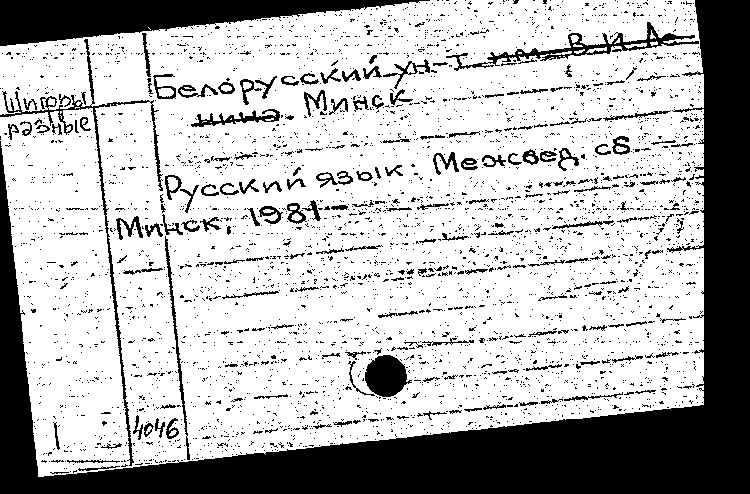 Шифры
разные
Белорусский ун-т им В И Ле
нина. Минск
Русский язык: Межвед. сб
Минск, 1981-
4046